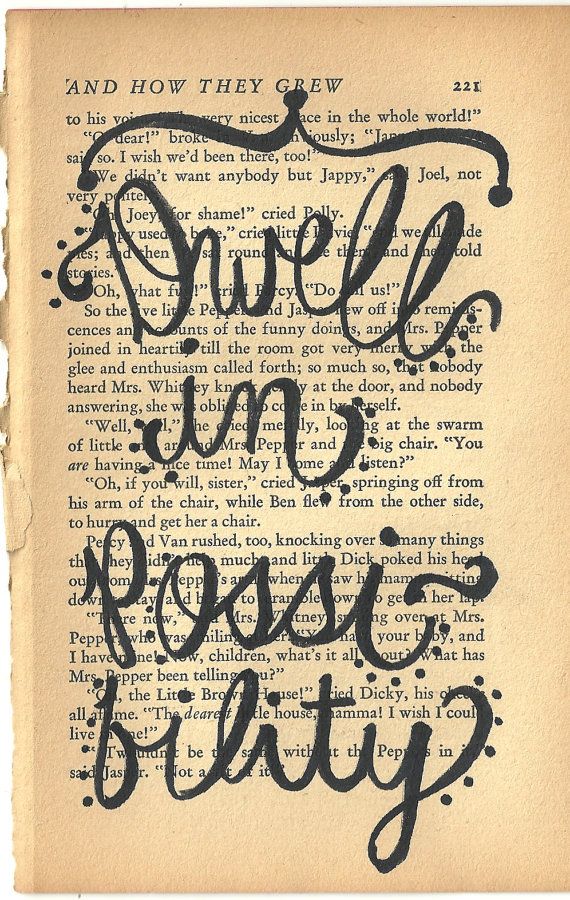 AND HOW THEY GREW 221
to his very nicest in the whole world!”
dear!” broke in
so. I wish we’d been there, too!”
“We didn’t want anybody but Jappy,” said Joel, not
very politely.
“Oh, Joey, for shame!” cried Polly.
used to bake,” cried little “and we all made
pies; and then sat round them, and told
stories.
“Oh, what fun!” cried Percy. “Do tell us!”
So the five little Peppers and flew off into reminis-
cences and accounts of the funny doings, and Mrs. Pepper
joined in heartily till the room got very merry with the
glee and enthusiasm called forth; so much so, that nobody
heard Mrs. Whitney at the door, and nobody
answering, she was obliged to come in by herself.
“Well, well,” she cried merrily, looking at the swarm
of little around Mrs. Pepper and the big chair. “You
are having a nice time! May I come and listen?”
“Oh, if you will, sister,” cried Jasper, springing off from
his arm of the chair, while Ben flew from the other side,
to hurry and get her a chair.
Percy and Van rushed, too, knocking over so many things
that they didn’t help much; and little Dick poked his head
out from Mrs. Pepper’s arms when saw his mamma sitting
down to stay and began to scramble down to get in her lap.
“There now,” said Mrs. Whitney, smiling over at Mrs.
Pepper, who was smiling at her. “You have your baby, and
I have mine! Now, children, what’s it all about? What has
Mrs. Pepper been telling you?”
“Oh, the Little Brown House!” cried Dicky, his cheeks
all aflame. “The dearest little house, mamma! I wish I could
live in one!”
“‘Twouldn’t be the same without the Peppers in it,”
said Jasper. “Not a bit of it
Dwell
in
Possi
bility